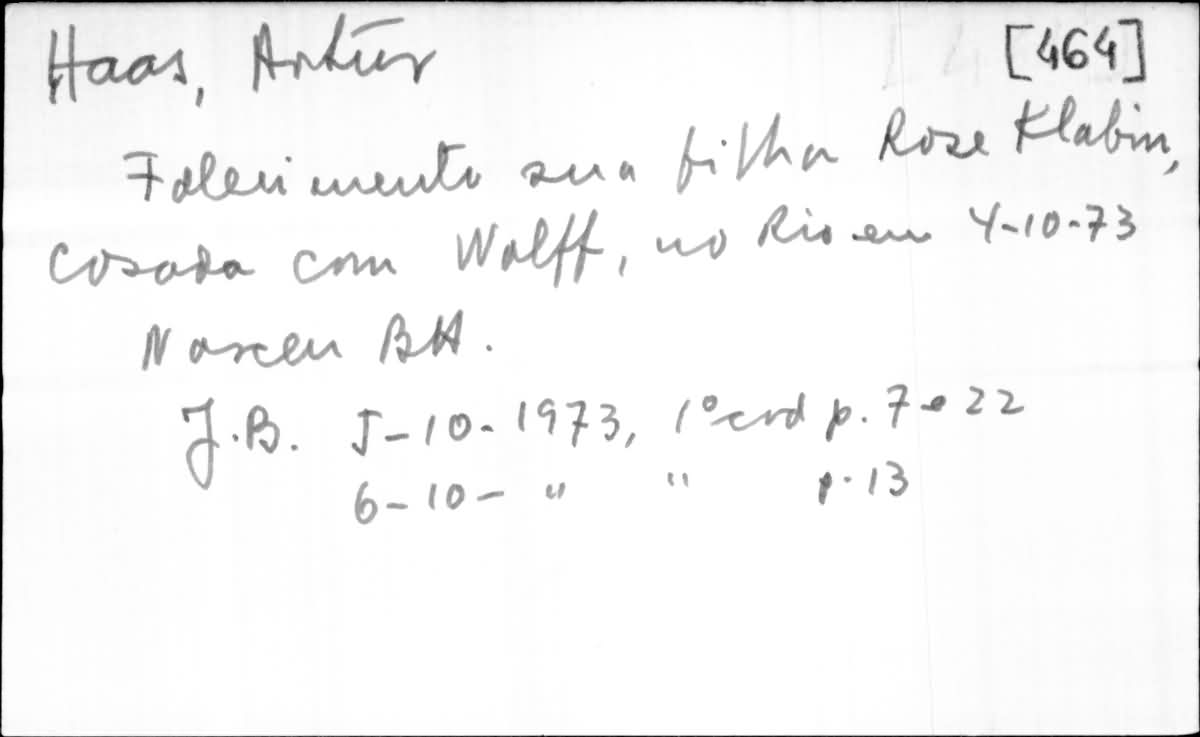 Haas, Artur [464]
Falecimento sua filha Rose Klabin,
casada com Wolff, no Rio em 4-10-73
Nasceu BH.
J.B. 5-10-1973, 1º cad p. 7 e 22
6-10- " " p. 13